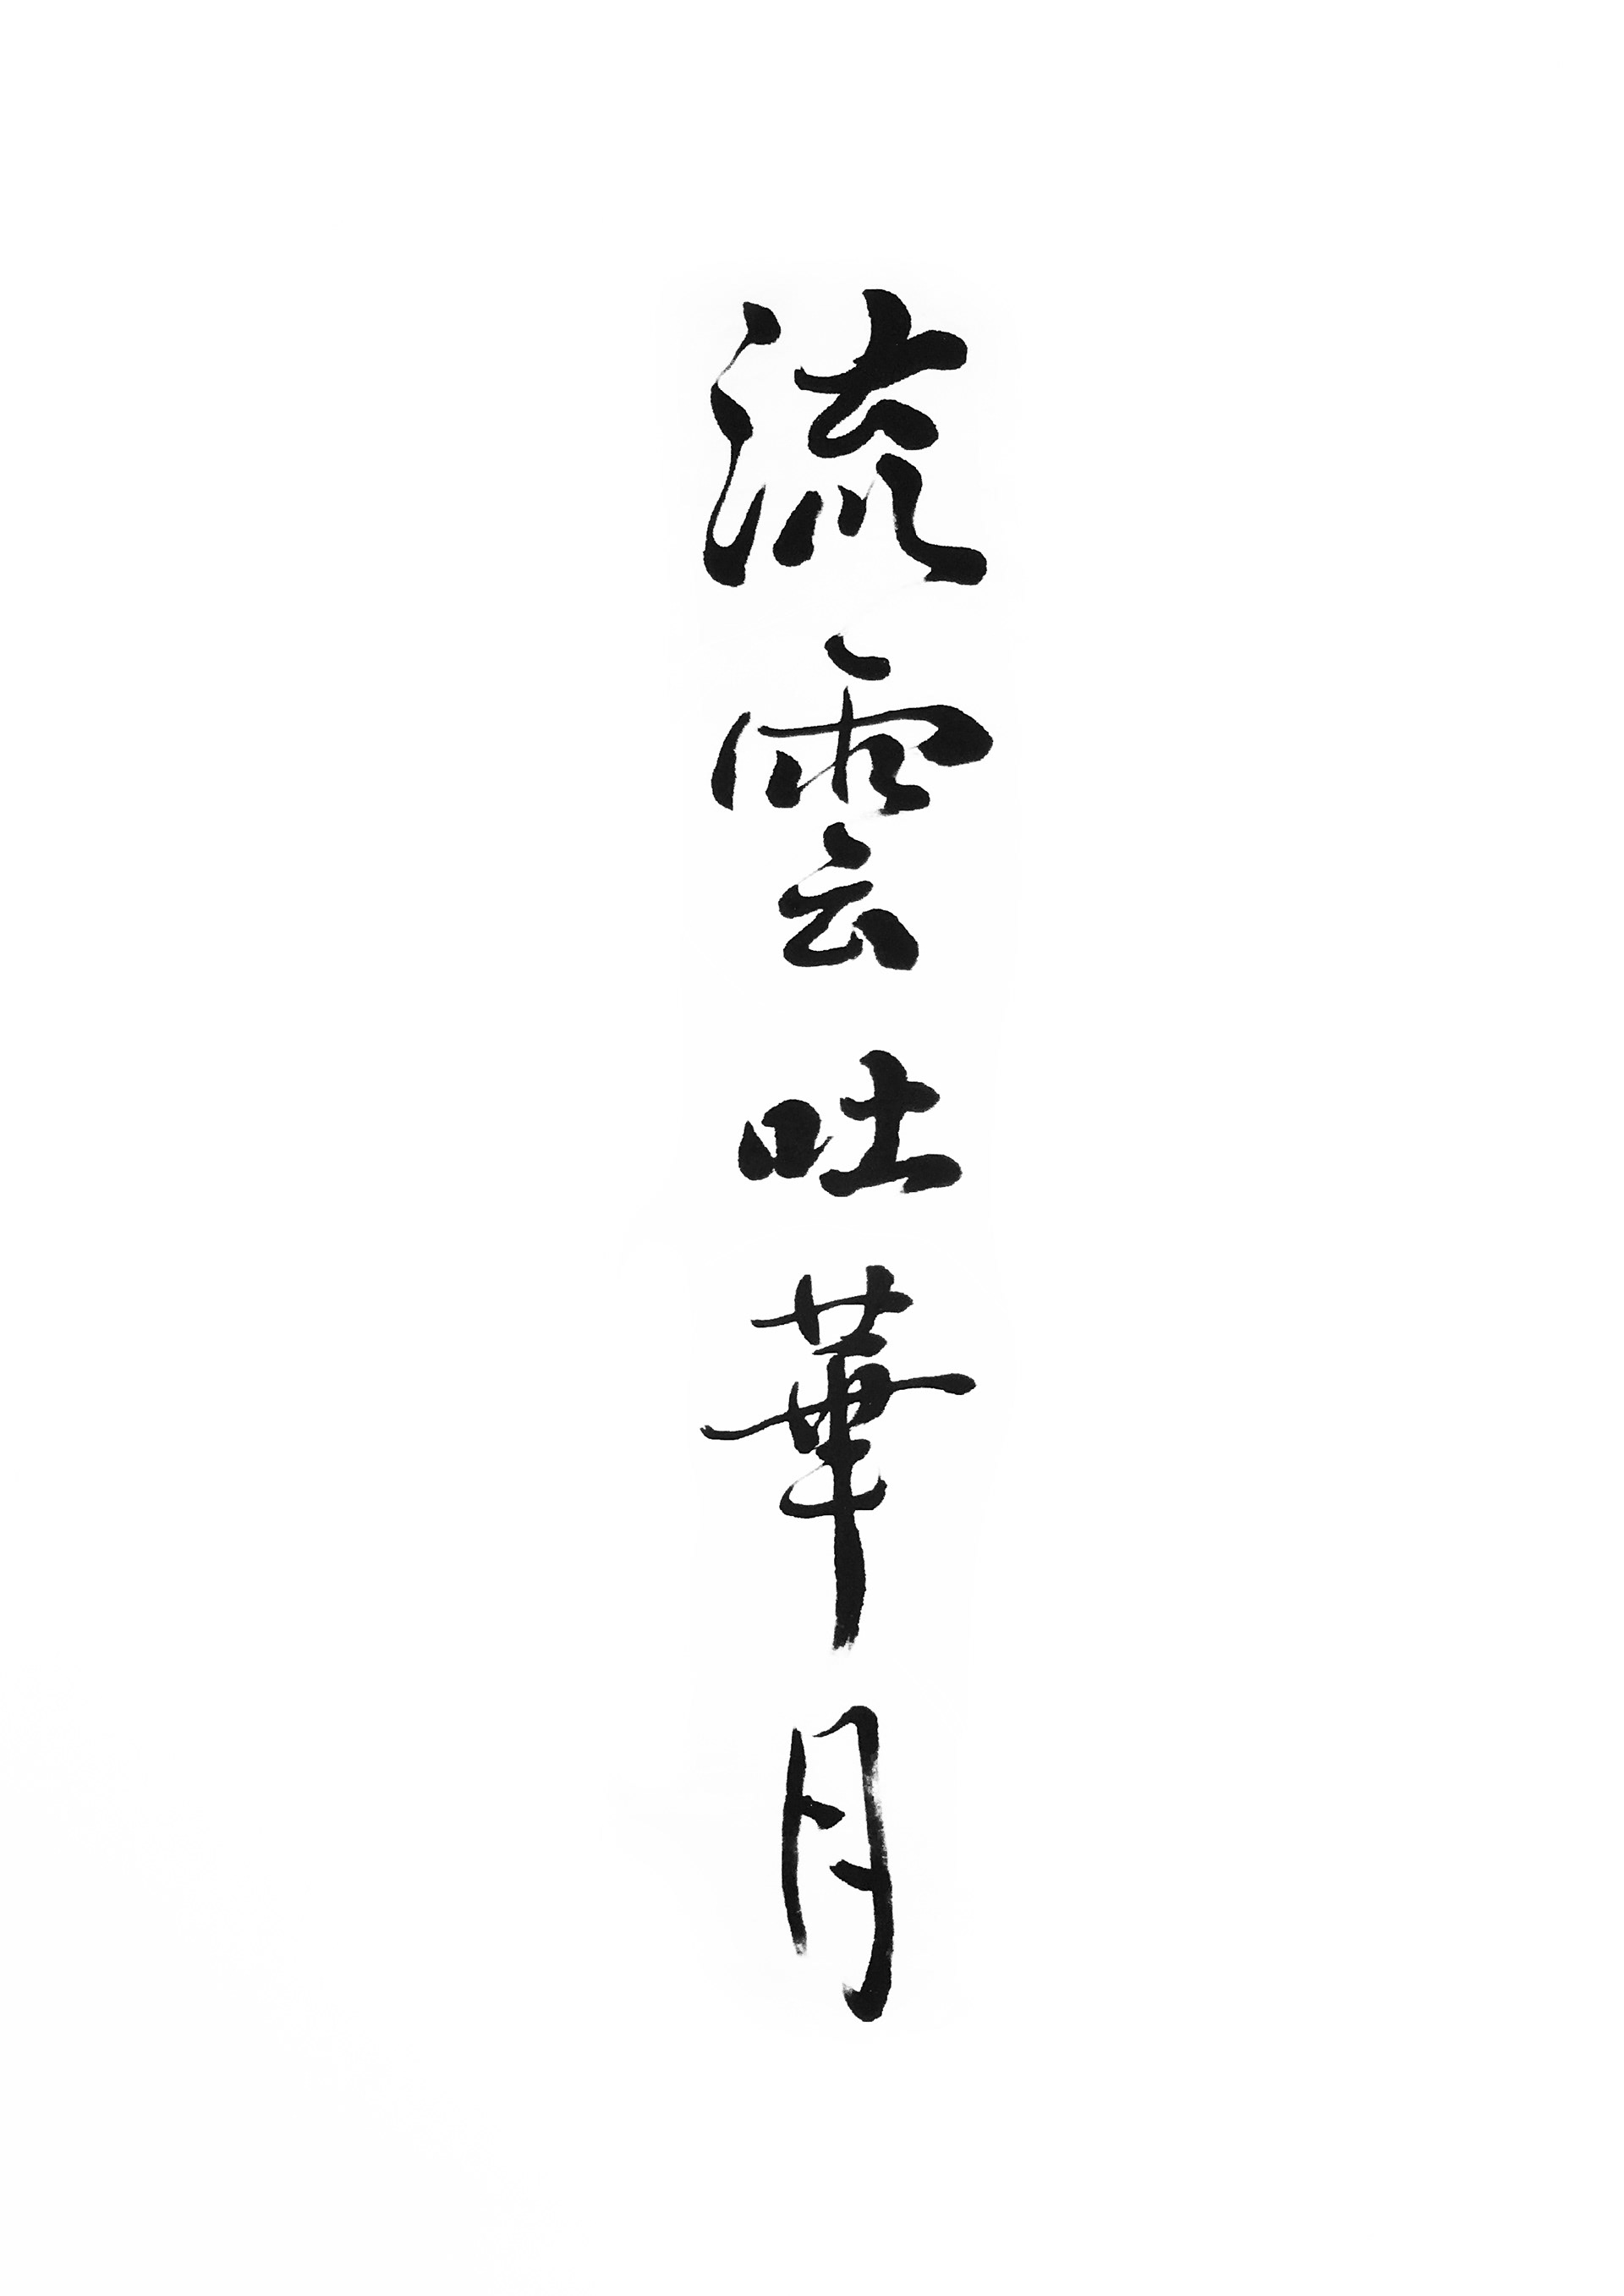 流雲吐華月